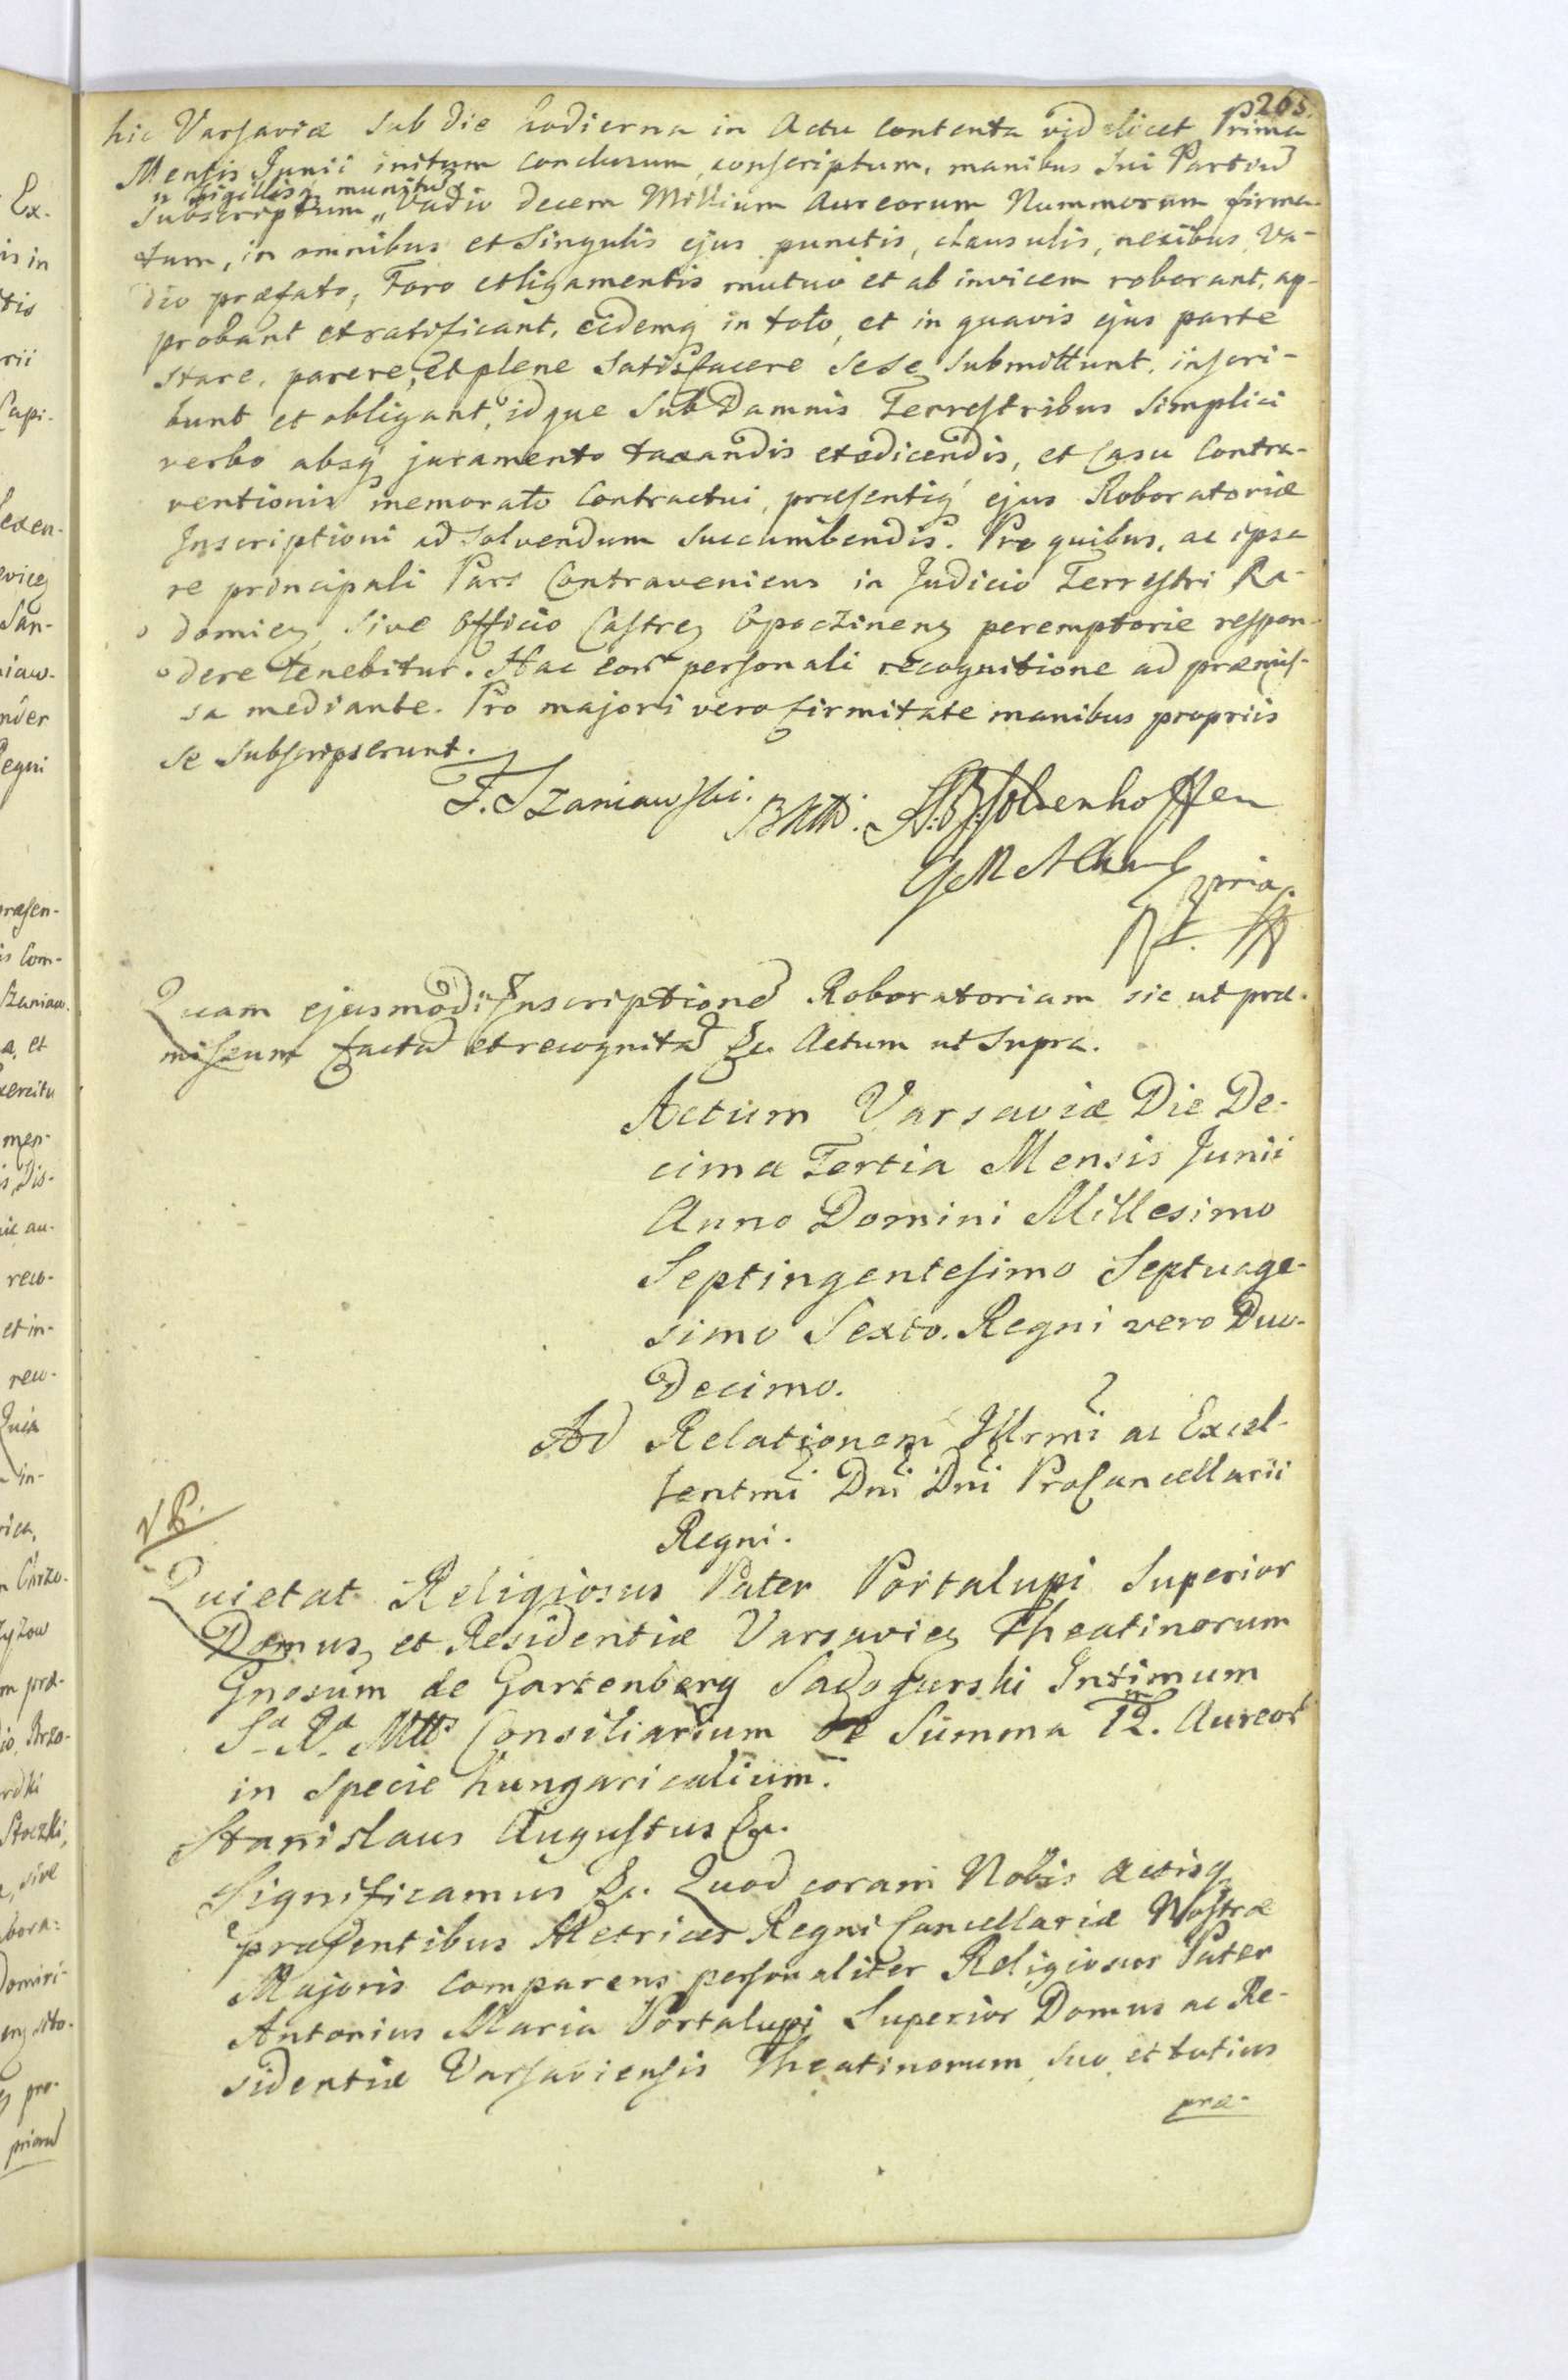 265.
hic Varsaviæ sub die hodierna in Actu contenta videlicet Prima
Mensis Junii initum conclusum, conscriptum, manibus sui Partiũ
„ sigillisq. munitũ
subscriptum „ Vadio decem Millium Aureorum Nummorum firma-
tum, in omnibus et singulis ejus punctis, clausulis, nexibus, Va-
dio præfato, Foro et ligamentis mutuo et ab invicem roborant, ap-
probant et ratificant, eidemq in toto, et in quavis ejus parte
stare, parere, et plene satisfacere sese submittunt, inscri-
bunt et obligant, idque sub Damnis Terrestribus simplici
verbo absq juramento taxandis et edicendis, et Casu Contra-
ventionis memorato Contractui, præsentiq ejus Roboratoriæ
Inscriptioni ad solvendum succumbendis. Pro quibus, ac ipsa
re principali Pars Contraveniens in Judicio Terrestri Ra-
domien, sive Officio Castren Opoczinens peremptorie respon-
dere tenebitur. Hac eor personali recognitione ad præmis-
sa mediante. Pro majori vero firmitate manibus propriis
se subscripserunt.
F. Szaniawski.
Quam ejusmodi Inscriptionẽ Roboratoriam sic ut præ-
missum factã et recognitã &c. Actum ut supra.
Actum Varsaviæ Die De-
cima Tertia Mensis Junii
Anno Domini Millesimo
Septingentesimo Septuage-
simo Sexto. Regni vero Duo-
decimo.
Ad Relationem Illrmi ac Excel-
lentmi Dni Dni ProCancellarii
Regni.
Quietat Religiosus Pater Portalupi Superior
Domus et Residentiæ Varsavien Theatinorum
Gnosum de Gartenberg Sadogurski Intimum
Sa Ra Mttis Consiliarium de Summa 12m. Aureor
in specie hungaricalium.
Stanislaus Augustus &c.
Significamus &c. Quod coram Nobis Actisq
præsentibus Metrices Regni Cancellariæ Nostræ
Majoris comparens personaliter Religiosus Pater
Antonius Maria Portalupi Superior Domus ac Re-
sidentiæ Varsaviensis Theatinorum suo et totius
præ-